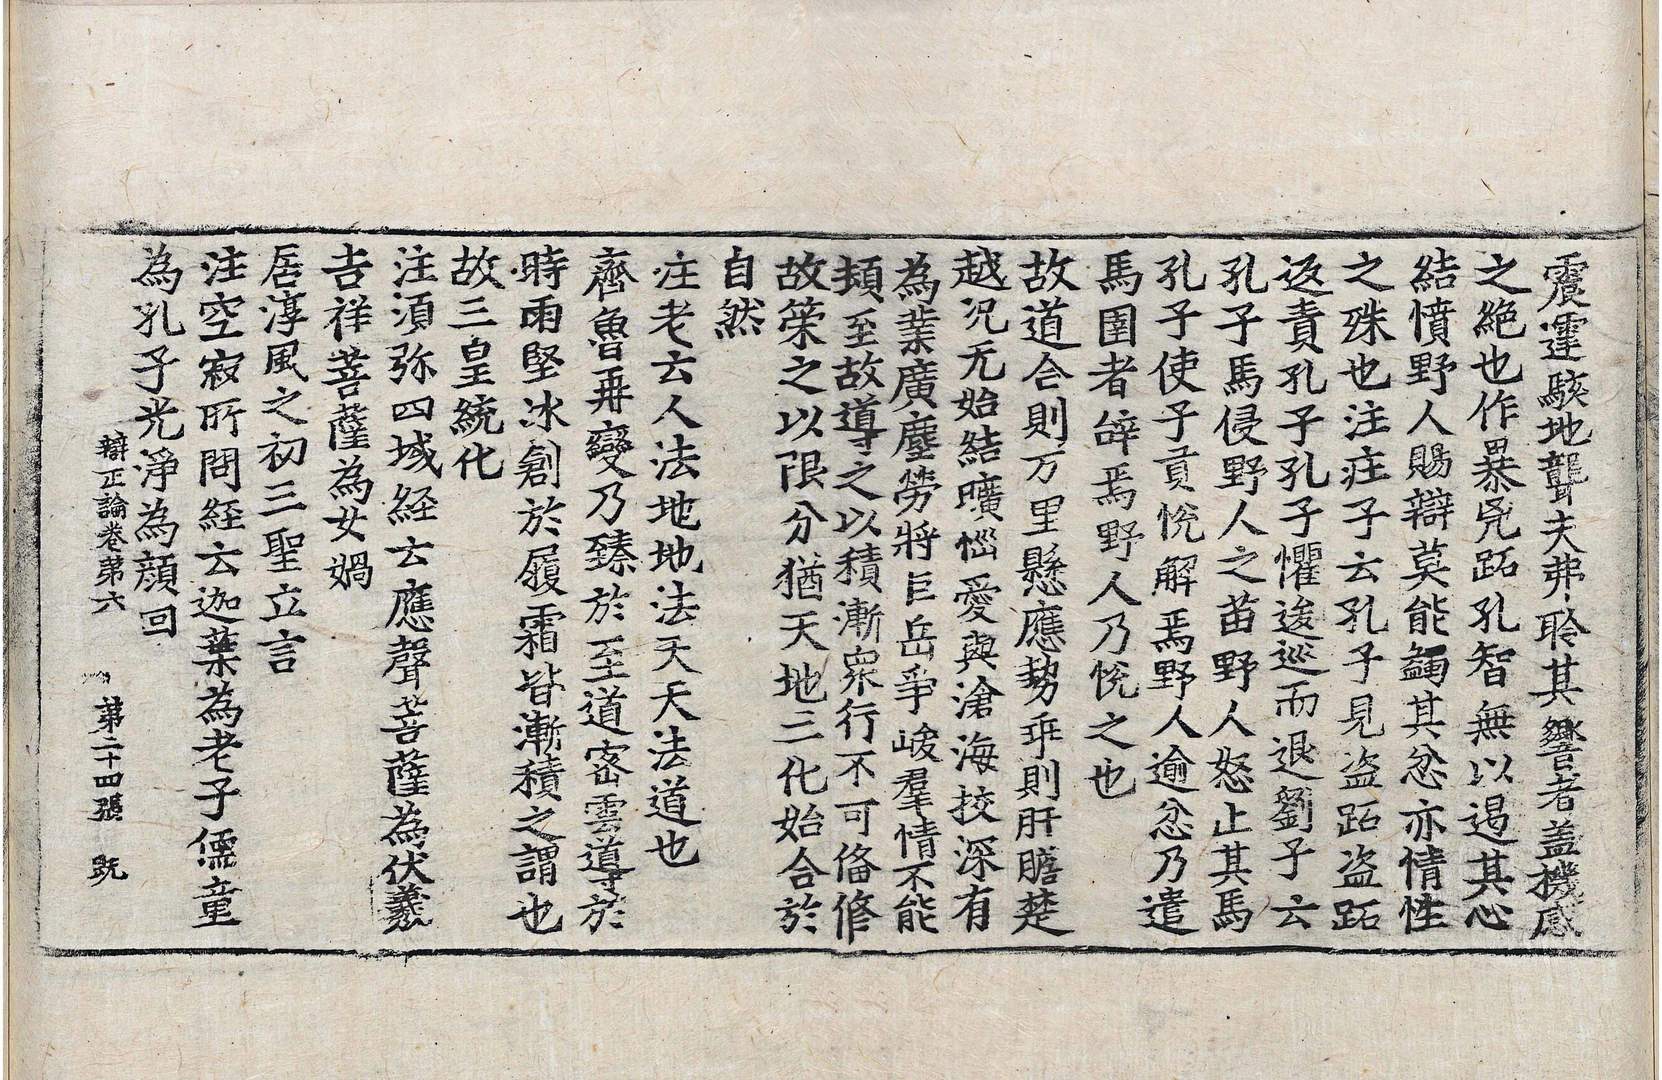 震霆駭地聾夫弗聆其響者盖機感
之絶也作暴兇跖孔智無以遏其心
結憤野人賜辯莫能蠲其忿亦情性
之殊也注疰子云孔子見盗跖盗跖
返責孔子孔子懼逡巡而退劉子云
孔子馬侵野人之苗野人怒止其馬
孔子使子貢恱解焉野人逾忿乃遣
馬圉者辝焉野人乃恱之也
故道合則万里懸應勢乖則肝膽楚
越况无始結曠惱愛與滄海挍深有
為業廣塵勞將巨岳爭峻羣情不能
頓至故導之以積漸衆行不可俻修
故策之以限分猶天地三化始合於
自然
注老云人法地地法天天法道也
齊魯再變乃臻於至道密雲導於
時雨堅氷創於履霜皆漸積之謂也
故三皇統化
注湏弥四域経云應聲菩薩為伏羲
吉祥菩薩為女媧
居淳風之初三聖立言
注空寂所問経云迦葉為老子儒童
為孔子光淨為顔回
辯正論卷第六 第二十四張 旣